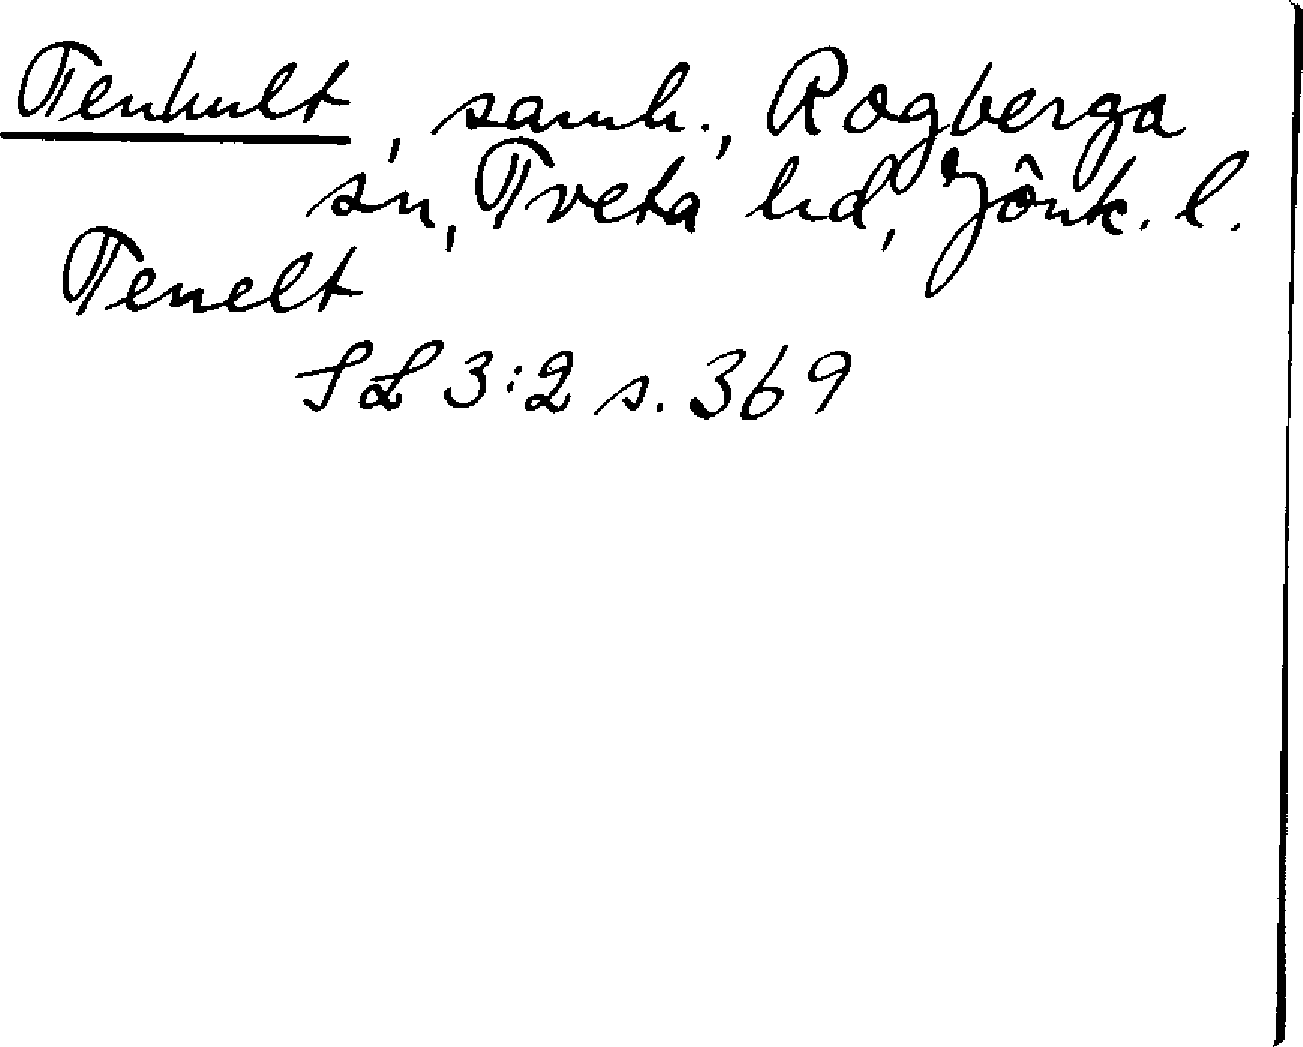 Tenhult, samh., Rogberga
sn, Tveta hd, Jönk. l.
Tenelt
SL 3:2 s. 369